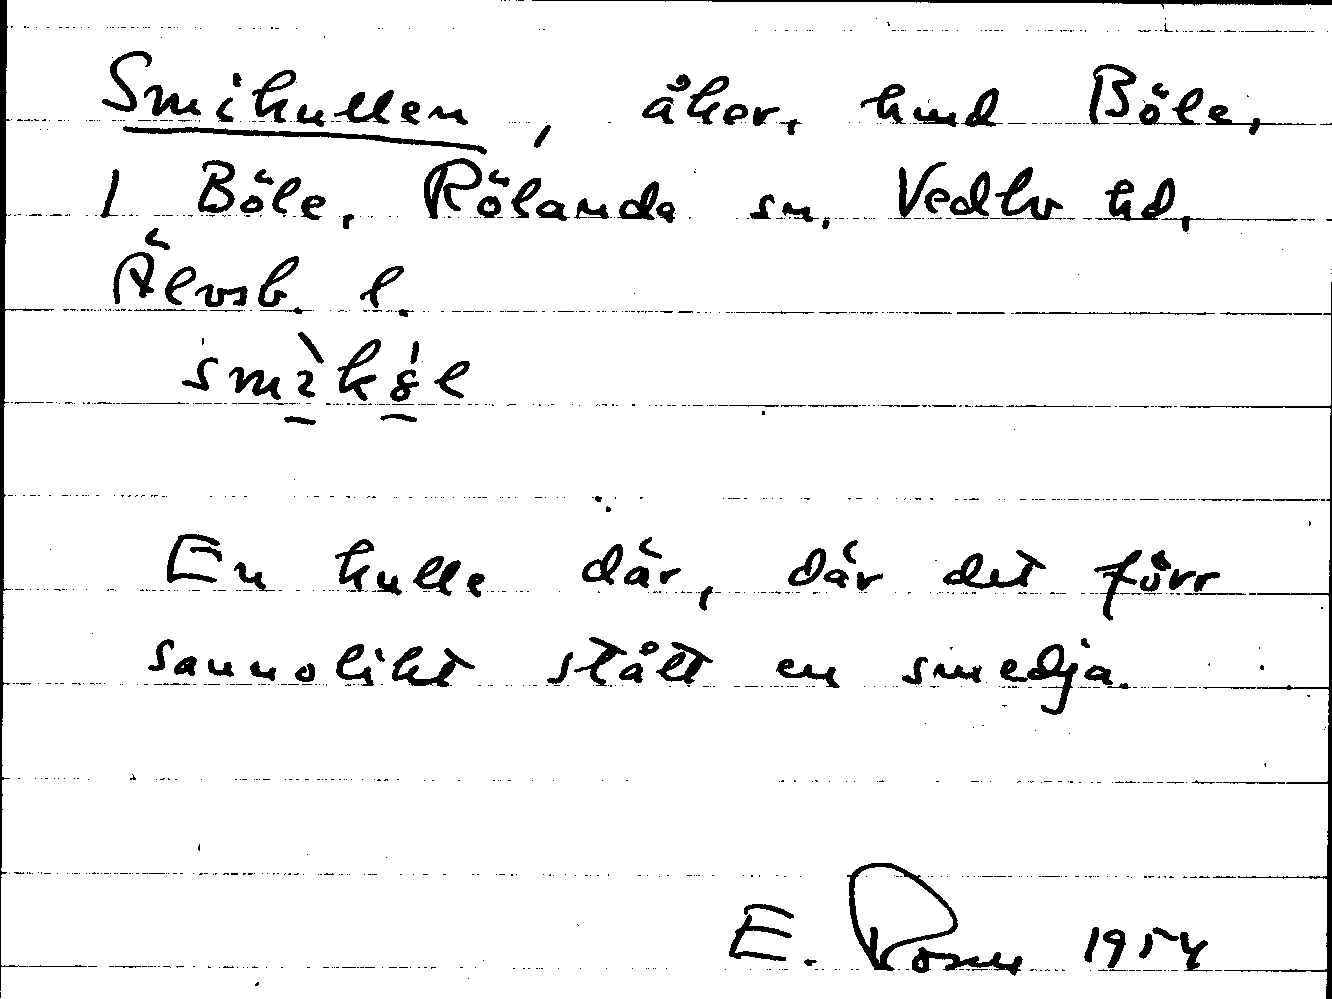 Smikullen, åker, hmd Böle,
1 Böle, Rölanda sn, Vedbo hd,
Älvsb. l.
En kulle där, där det förr
sannolikt stått en smedja.
E. 1954